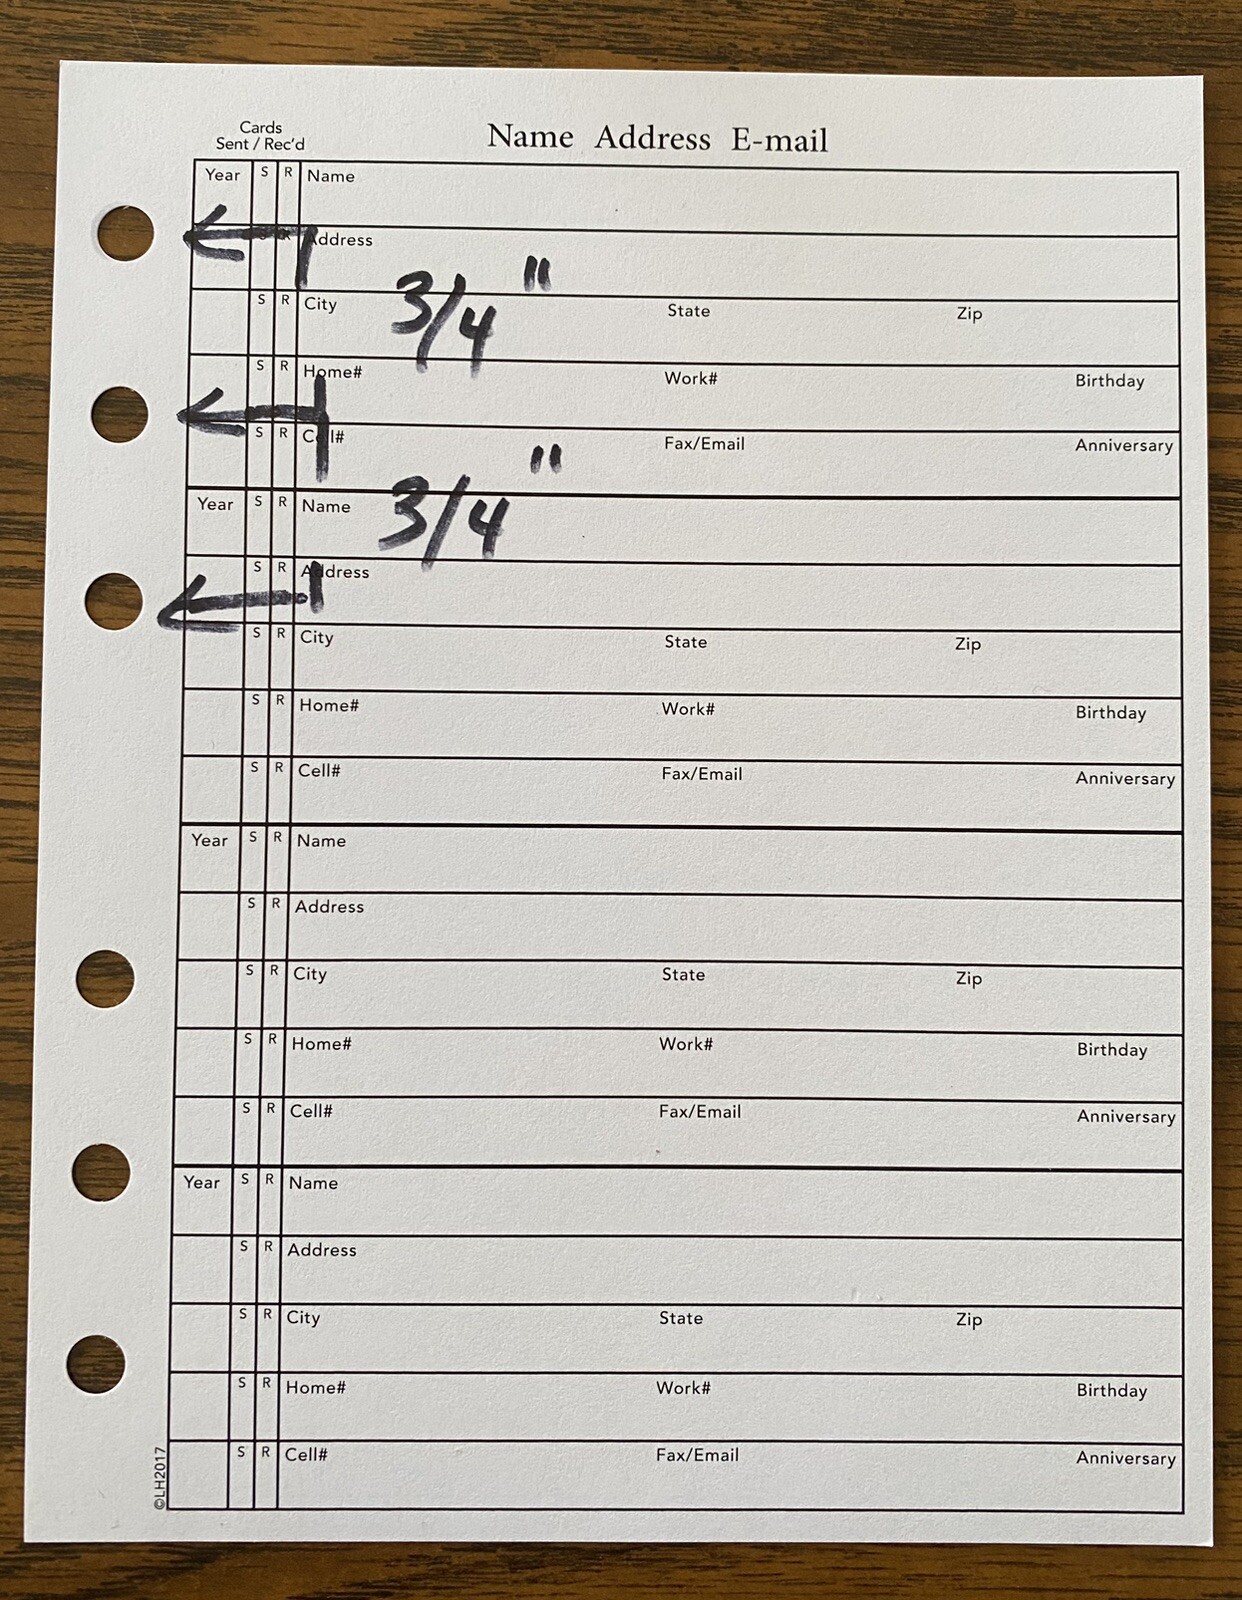 Cards
Sent / Rec'd
Name Address E-mail
Year S R Name
S R Address
3/4"
S R City State Zip
S R Home# Work# Birthday
S R Cell# Fax/Email Anniversary
3/4"
Year S R Name
S R Address
S R City State Zip
S R Home# Work# Birthday
S R Cell# Fax/Email Anniversary
Year S R Name
S R Address
S R City State Zip
S R Home# Work# Birthday
S R Cell# Fax/Email Anniversary
Year S R Name
S R Address
S R City State Zip
S R Home# Work# Birthday
S R Cell# Fax/Email Anniversary
©LH2017